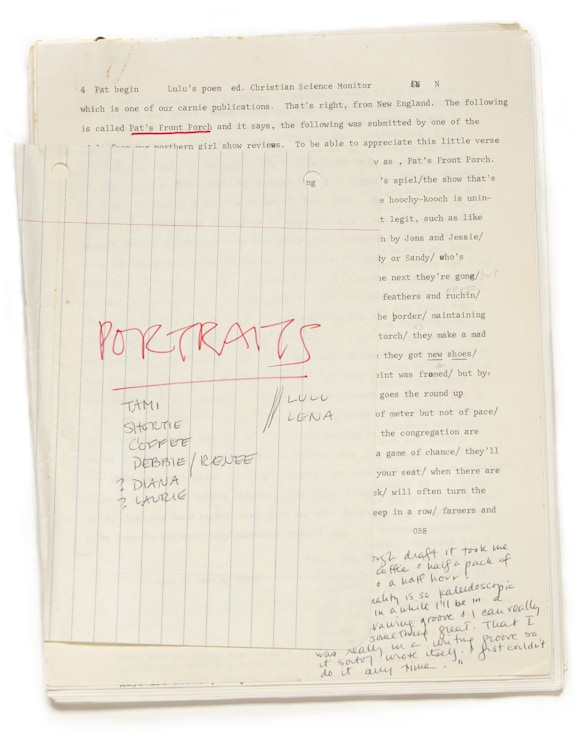 4 Pat begin Lulu's poem ed. Christian Science Monitor N
which is one of our carnie publications. That's right, from New England. The following
is called Pat's Front Porch and it says, the following was submitted by one of the
our northern girl show reviews. To be able to appreciate this little verse
as , Pat's Front Porch.
ng
's spiel/the show that's
hoochy-kooch is unin-
t legit, such as like
n by Jons and Jessie/
dy or Sandy/ who's
next they're gong/
feathers and ruchin/
he border/ maintaining
torch/ they make a mad
they got new shoes/
oint was framed/ but by
goes the round up
of meter but not of pace/
the congregation are
a game of chance/ they'll
your seat/ when there are
ek/ will often turn the
eep in a row/ farmers and
058
PORTRAITS
TAMI
SHORTIE
COFFEE
DEBBIE/RENEE
? DIANA
? LAURIE
// LULU
LENA
draft it took me
coffee & half a pack of
& a half hour!
is so kaleidoscopic
in a while I'll be in a
groove & I can really
something great. That I
was really in a writing groove so
it sorta wrote itself. I just couldn't
do it any more."